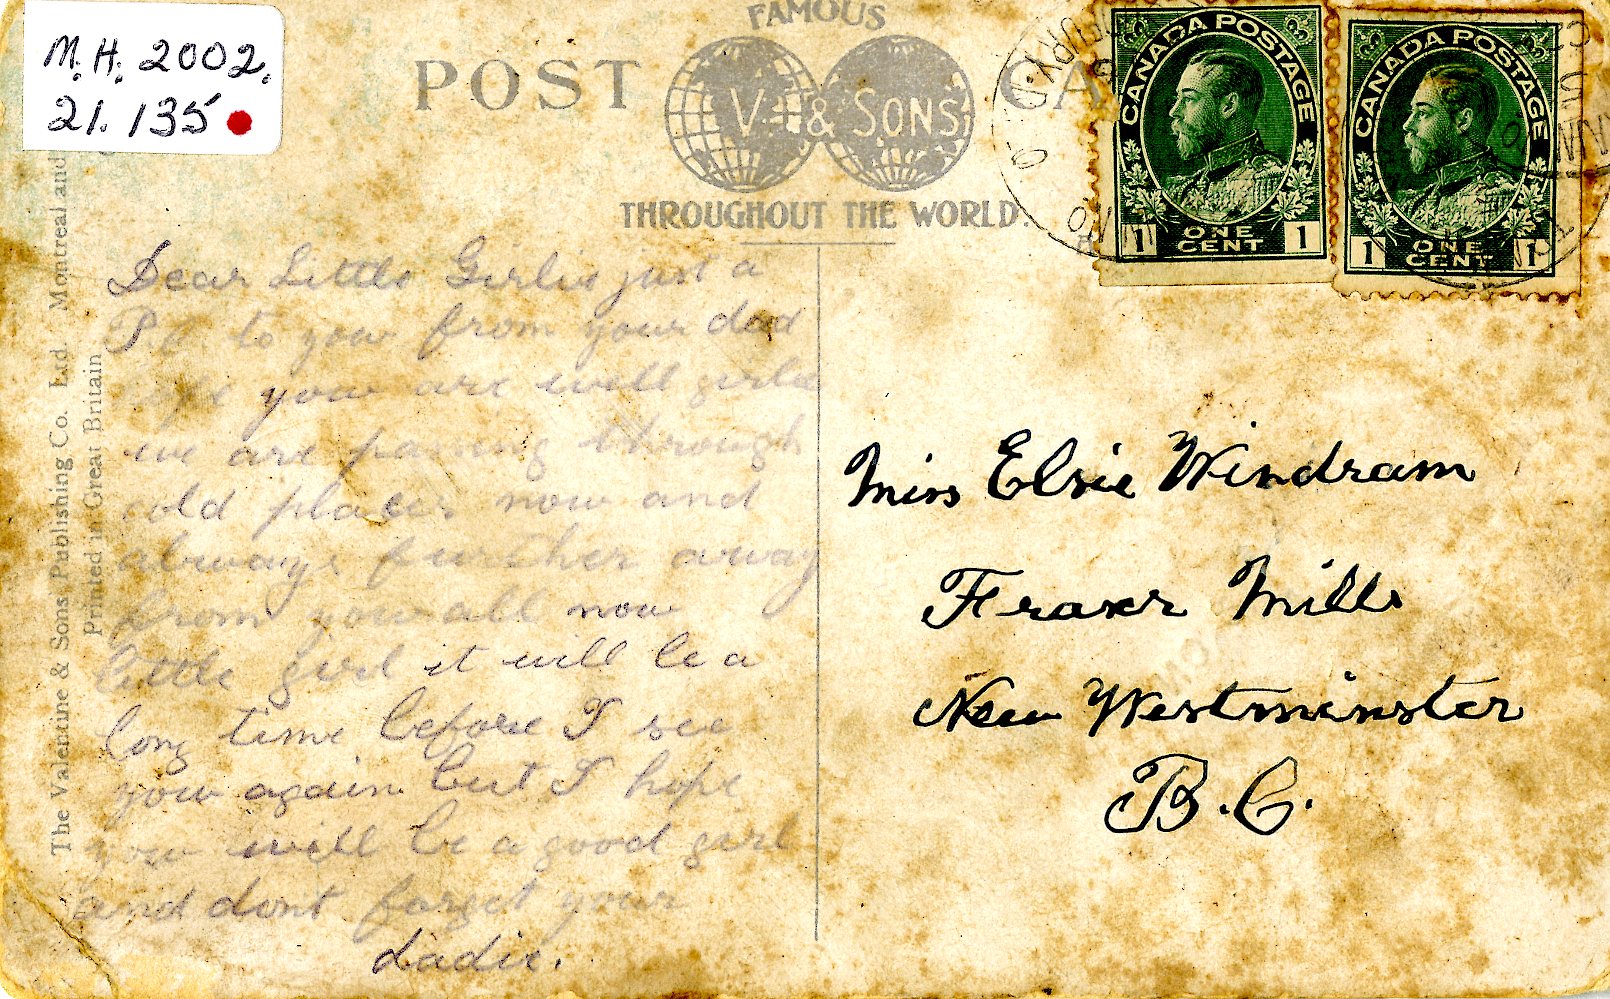 M.H. 2002.
21.135
FAMOUS
POST CA
V. & SONS
THROUGHOUT THE WORLD.
CANADA POSTAGE
ONE CENT
1 1
CANADA POSTAGE
ONE CENT
1 1
The Valentine & Sons Publishing Co. Ltd. Montreal and
Printed in Great Britain
Dear Little Girlie just a
P.C. to you from your dad
hope you are well girlie
we are passing through
cold places now and
always further away
from you all now
little girl it will be a
long time before I see
you again but I hope
you will be a good girl
and dont forget your
dadie.
Miss Elsie Windram
Fraser Mills
New Westminster
B.C.